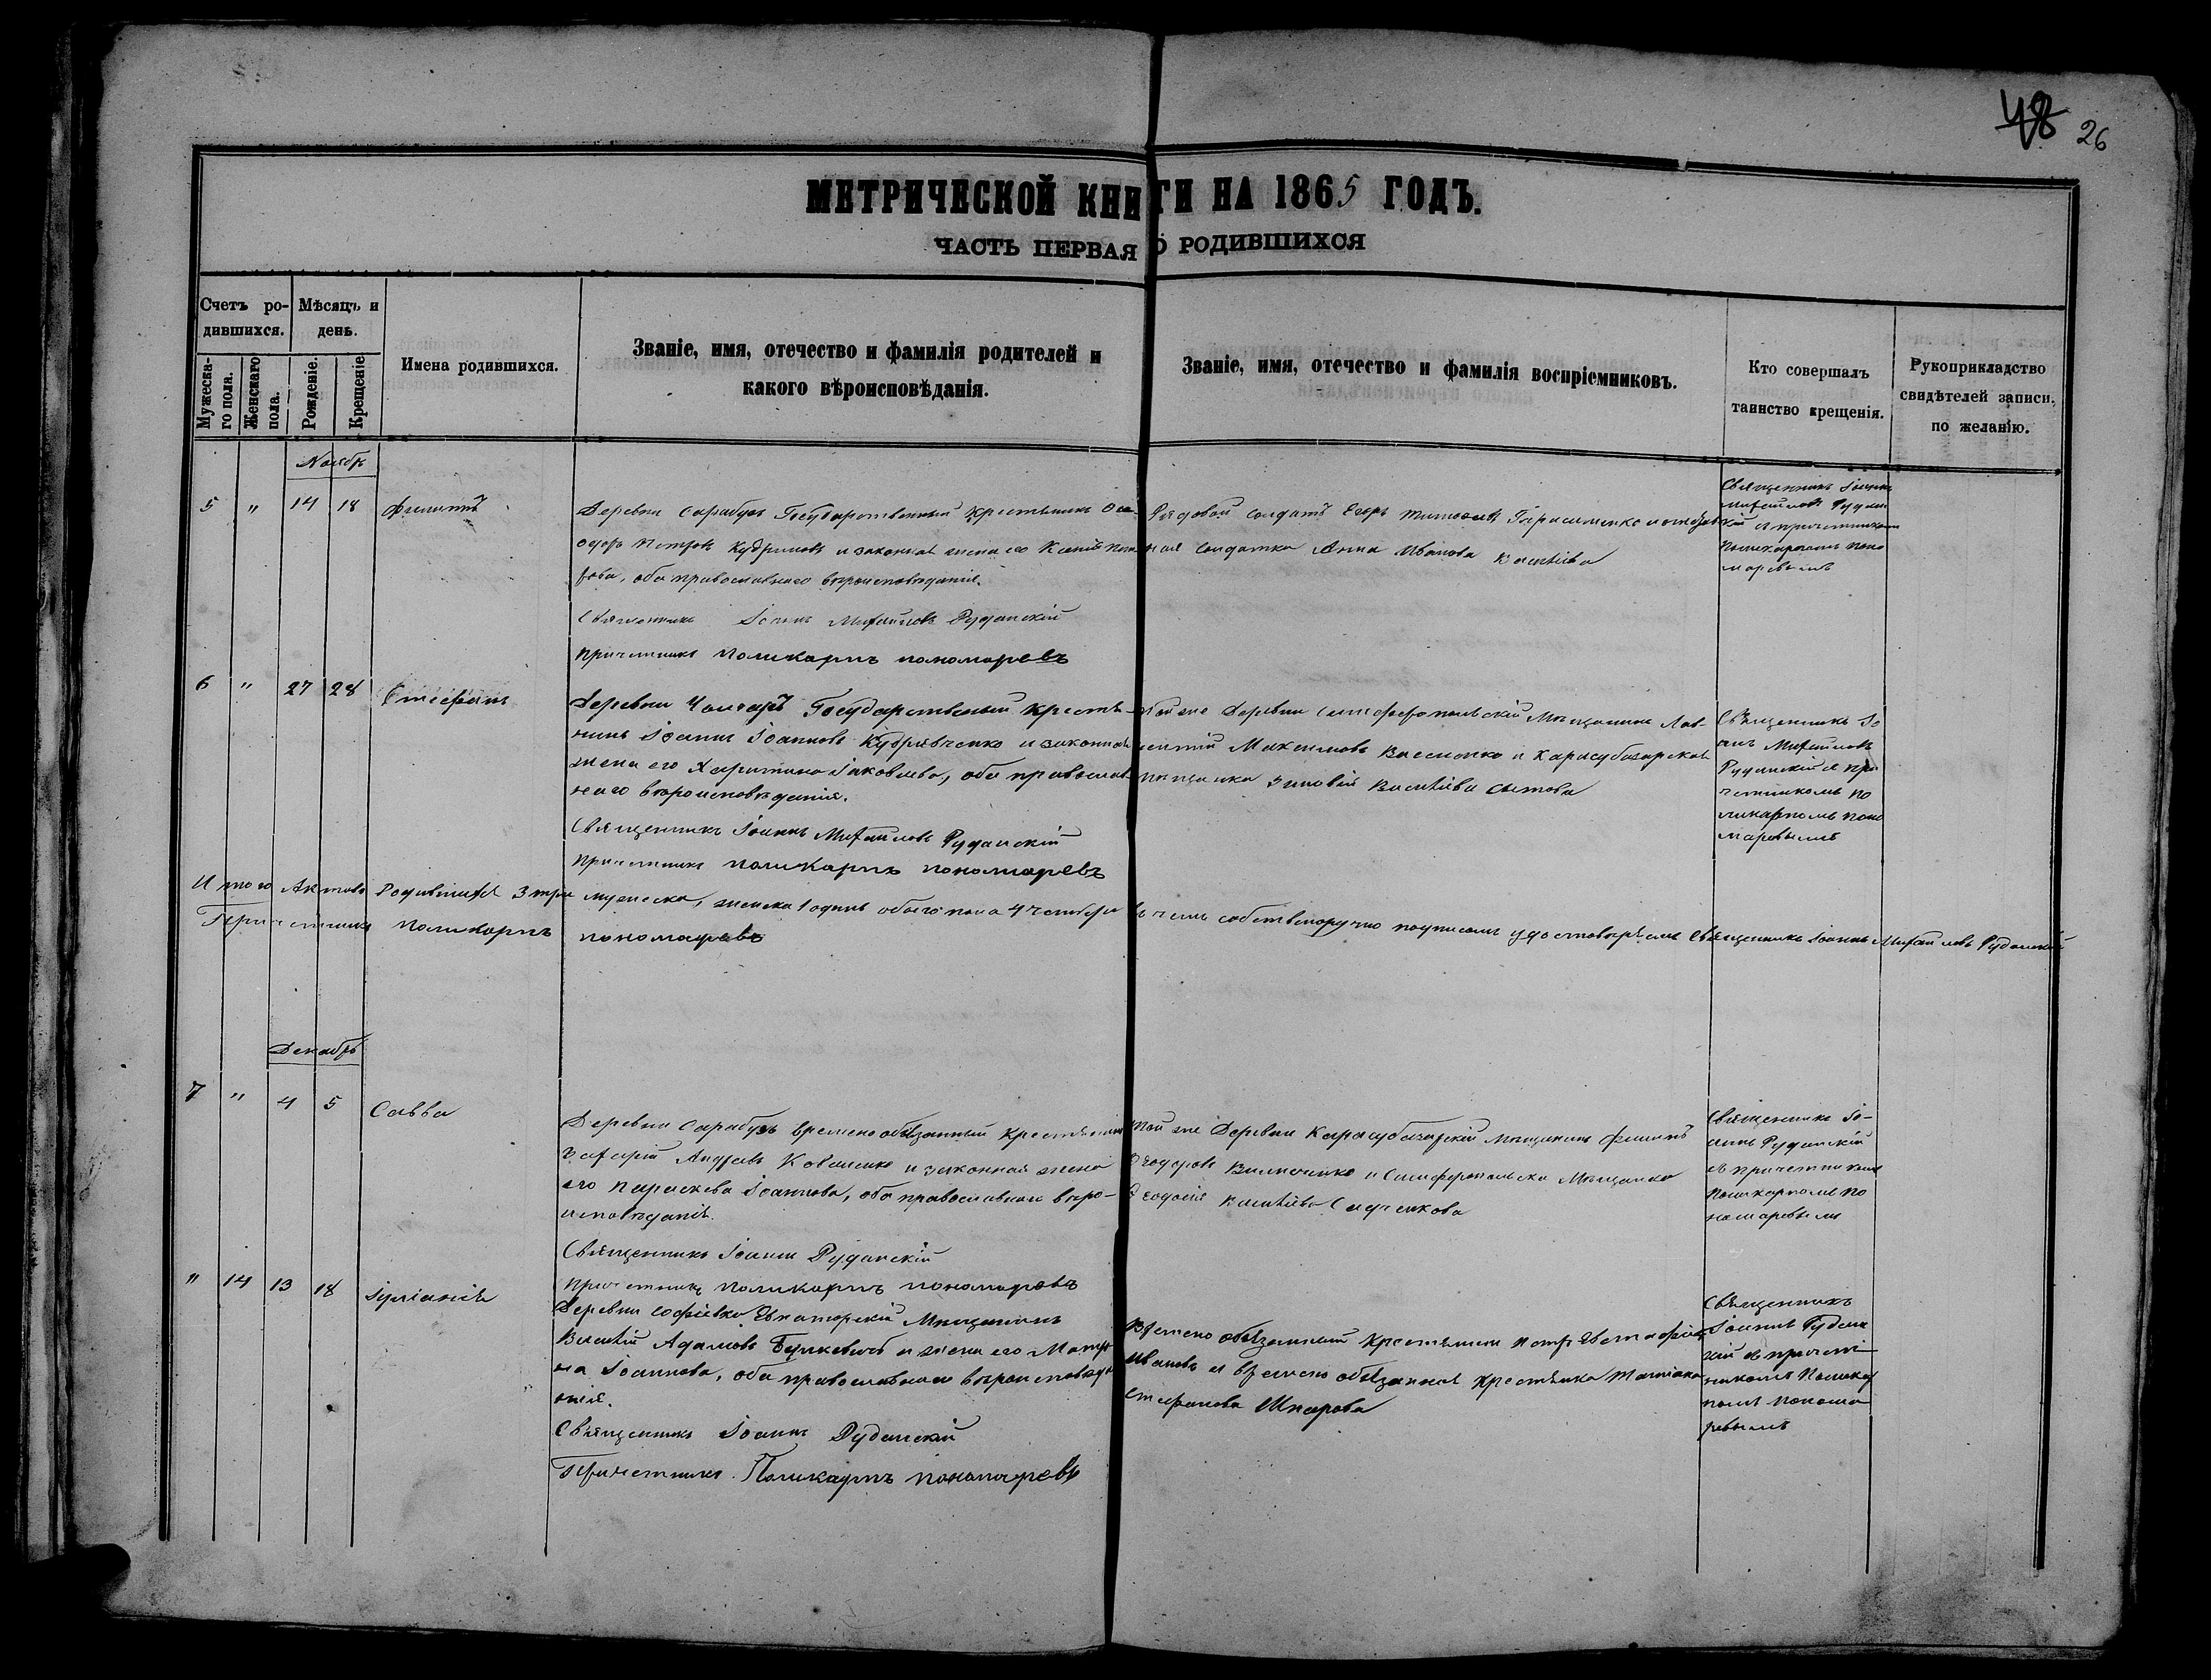 48 26
МЕТРИЧЕСКОЙ КНИГИ НА 1865 ГОДЪ.
ЧАСТЬ ПЕРВАЯ О РОДИВШИХСЯ
Счетъ ро-
дившихся.
Мѣсяцъ и
день.
Мужеска-
го пола.
Женскаго
пола.
Рожденіе.
Крещеніе
Имена родившихся.
Званіе, имя, отечество и фамилія родителей и
какого вѣроисповѣданія.
Званіе, имя, отечество и фамилія воспріемниковъ.
Кто совершалъ
таинство крещенія.
Рукоприкладство
свидѣтелей записи,
по желанію.
Ноябрь
5 " 14 18 Филиппъ
Деревни Сарабузъ Государственный крестьянинъ Ѳео-
доръ Петровъ и законная жена его
рова, оба православнаго вѣроисповѣданія.
Священникъ Іоаннъ Михайловъ Руданскій
Причетникъ Поликарпъ Пономаревъ
Рядовой солдатъ Егоръ Герасименко и
ная солдатка Анна Иванова
Священникъ Іоаннъ
Михайловъ Рудан
скій съ причетникомъ
Поликарпомъ Поно
маревымъ
6 " 27 28 Стефанъ
Деревни Государственный крестья-
нинъ Іоаннъ Іоанновъ Кудрявченко и законная
жена его Харитина Іаковлева, оба православ
наго вѣроисповѣданія.
Священникъ Іоаннъ Михайловъ Руданскій
Причетникъ Поликарпъ Пономаревъ
той же Деревни Симферопольскій Мѣщанинъ Лав-
рентій Максимовъ и Карасубазарская
мѣщанка Зиновія Василіева
Священникъ Іо
аннъ Михайловъ
Руданскій съ при
четникомъ По
ликарпомъ Поно
маревымъ
Итого Актовъ Родившихся 3 три мужеска, женска 1 одинъ обоего пола 4 четыре въ чемъ собственоручно подписомъ удостовѣряемъ Священникъ Іоаннъ Михайловъ Руданскій
Причетникъ Поликарпъ Пономаревъ
Декабрь
7 " 4 5 Савва
Деревни Сарабузъ временообязанный крестьянинъ
Захарій Андреевъ Коваленко и законная жена
его Параскева Іоаннова, оба православнаго вѣро-
исповѣданія.
Священникъ Іоаннъ Руданскій
Причетникъ Поликарпъ Пономаревъ
той же Деревни Карасубазарскій мѣщанинъ Филипъ
Ѳеодоровъ и Симферопольска Мѣщанка
Ѳеодосія Василіева
Священникъ Іо-
аннъ Руданскій
съ причетникомъ
Поликарпомъ По
номаревымъ
" 14 13 18 Іуліанія
Деревни Софіевка Евпаторскій Мѣщанинъ
Василій Адамовъ и жена его Матро
на Іоаннова, оба православнаго вѣроисповѣда
нія.
Священникъ Іоаннъ Руданскій
Причетникъ Поликарпъ Пономаревъ
Времено обязанный крестьянинъ Петръ Евстафіевъ
Ивановъ и времено обязанная крестьянка Татіана
Стефанова Шкарова
Священникъ
Іоаннъ Рудан
скій съ причет
никомъ Поликар
помъ Понома
ревымъ